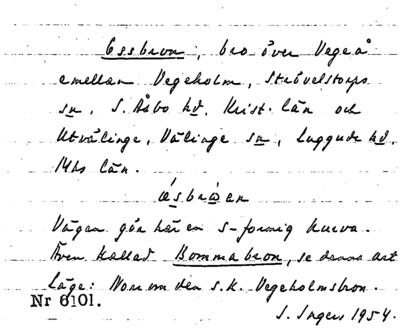 Essbron, bro över Vegeå
emellan Vegeholm, Strövelstorps
sn, S. Åsbo hd, Krist. län och
Utvälinge, Välinge sn, Luggude hd,
Mhs län.
ésbrøen
Vägen gör här en s-formig kurva.
Även kallad Bommabron, se denna art
Läge: Norr om den s.k. Vegeholmsbron.
Nr 6101.
S. Ingers 1954.